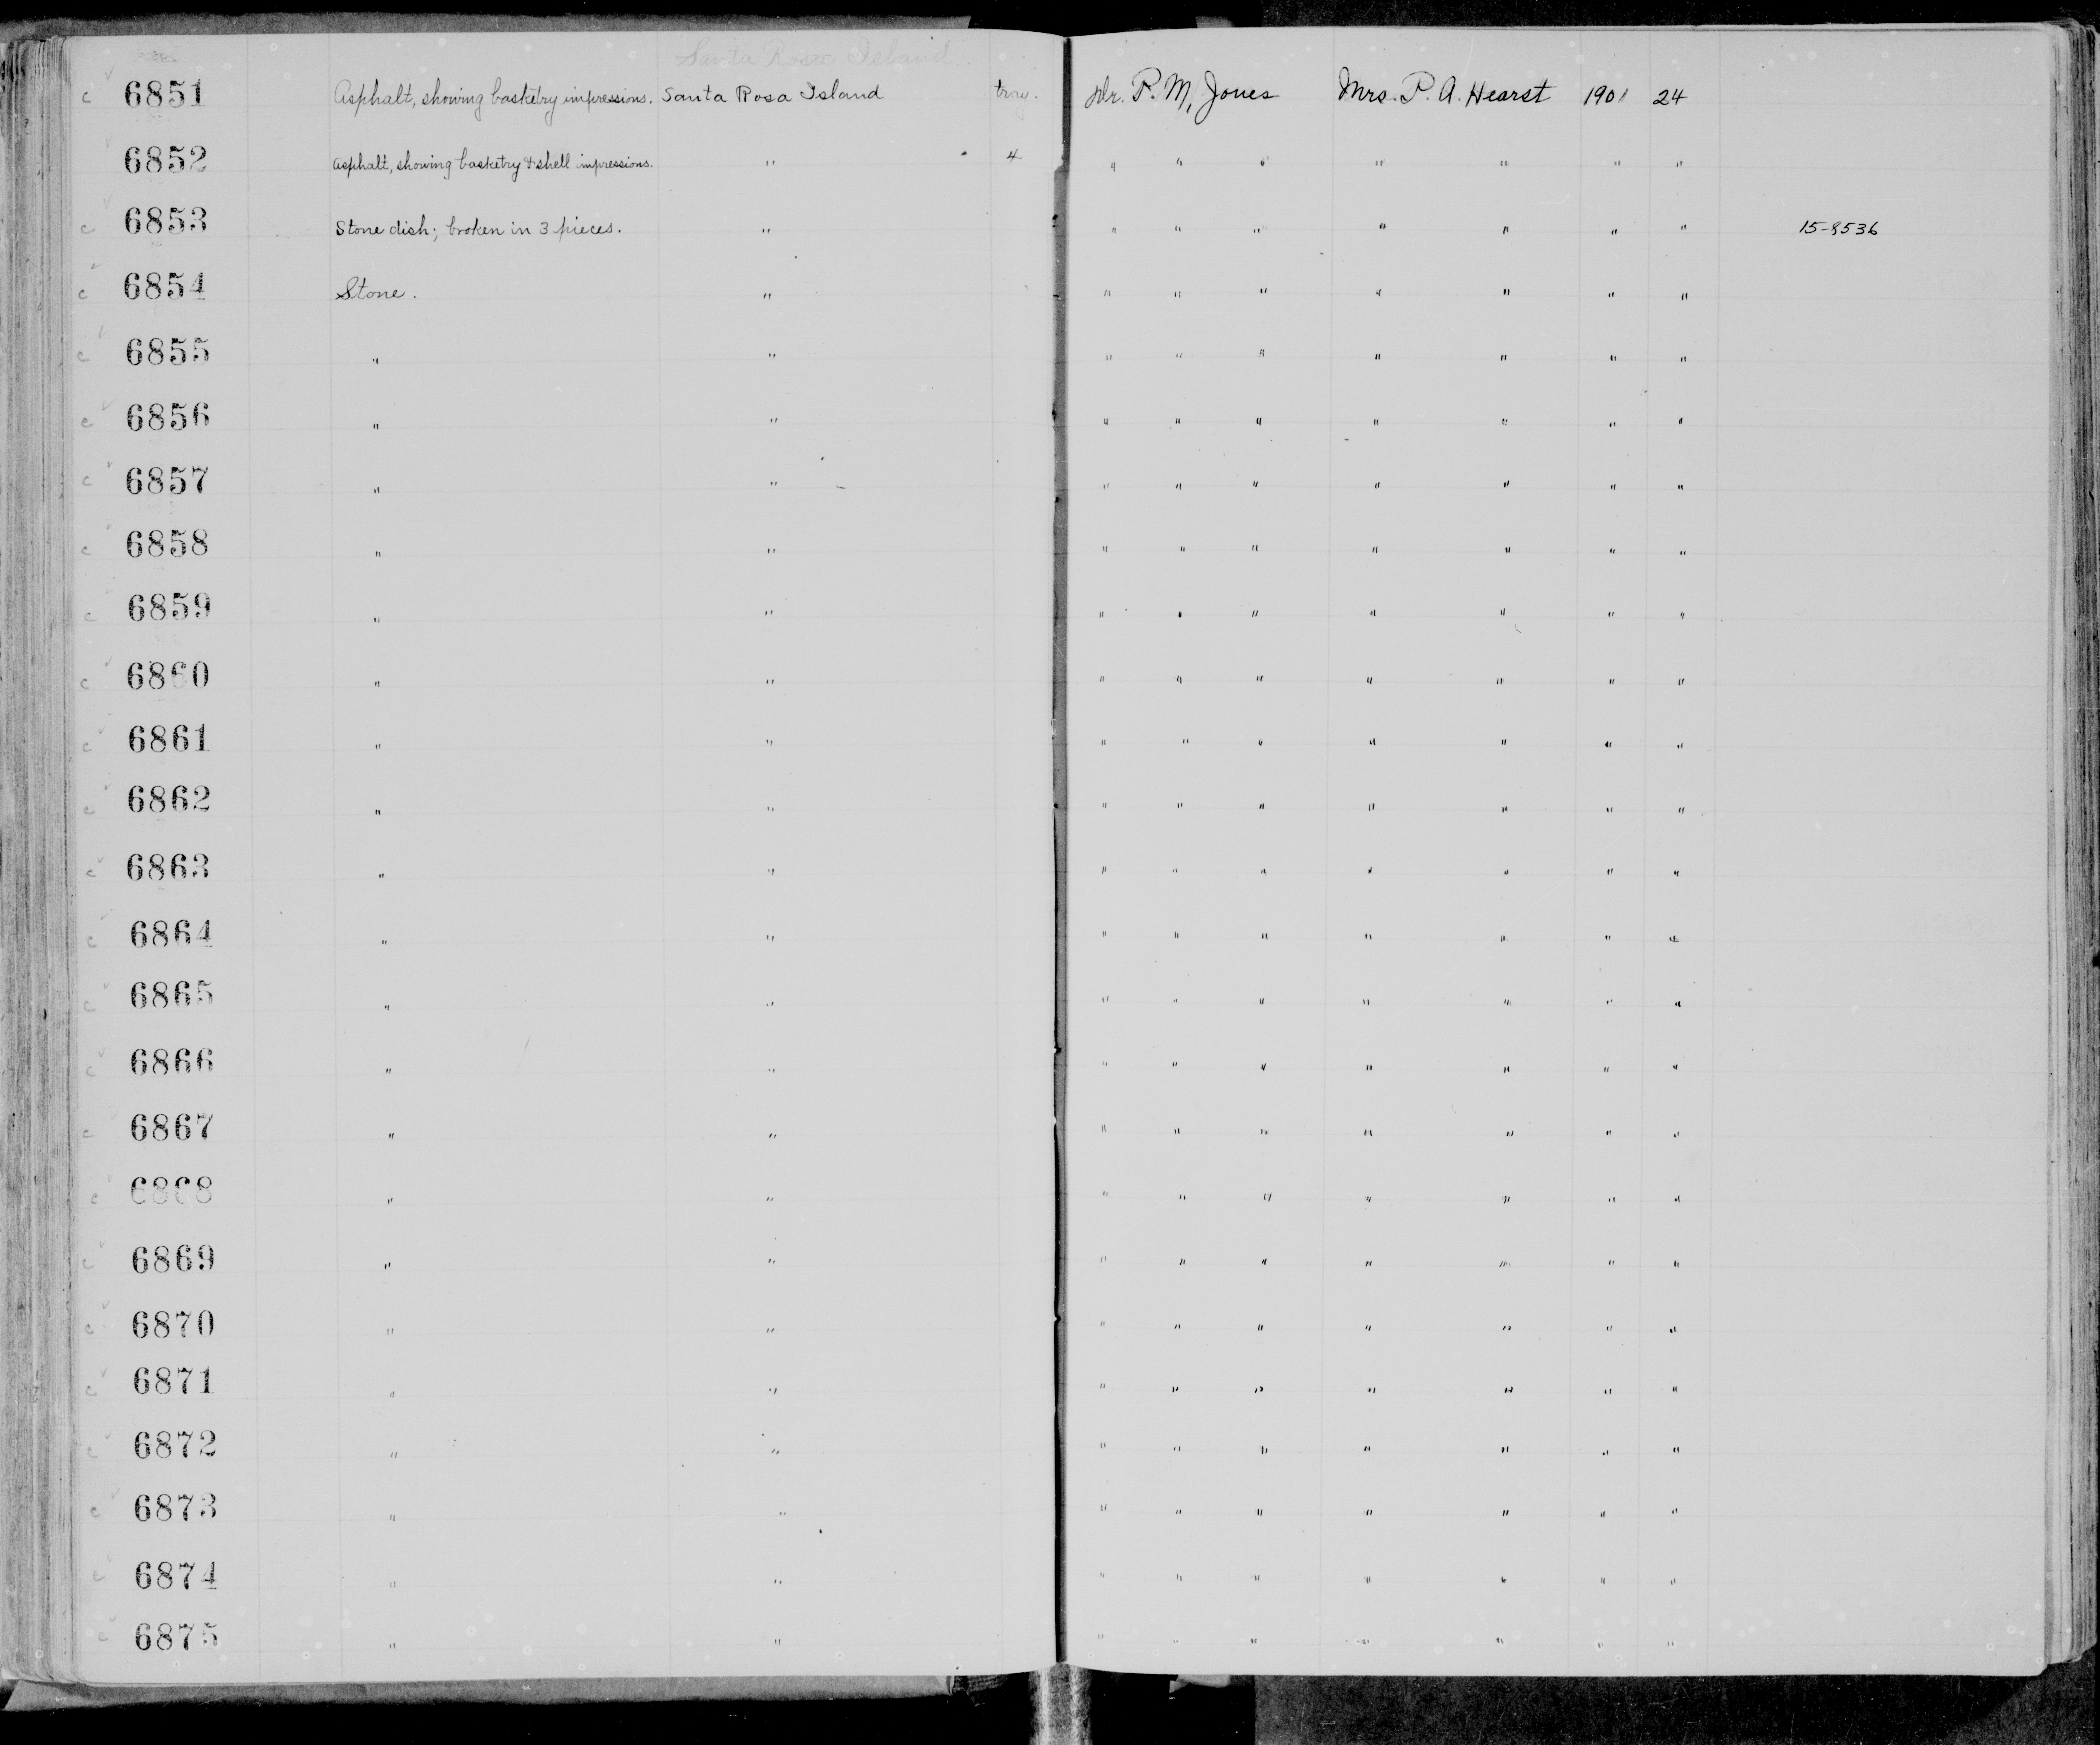 Santa Rosa Island
c 6851 Asphalt, showing basketry impressions. Santa Rosa Island tray. Dr. P. M. Jones Mrs. P. A. Hearst 1901 24
6852 Asphalt, showing basketry & shell impressions. " 4 " " " " " " "
c 6853 Stone dish; broken in 3 pieces. " " " " " " " " 15-8536
c 6854 Stone. " " " " " " " "
c 6855 " " " " " " " " "
c 6856 " " " " " " " " "
c 6857 " " " " " " " " "
c 6858 " " " " " " " " "
c 6859 " " " " " " " " "
c 6860 " " " " " " " " "
c 6861 " " " " " " " " "
c 6862 " " " " " " " " "
c 6863 " " " " " " " " "
c 6864 " " " " " " " " "
c 6865 " " " " " " " " "
c 6866 " " " " " " " " "
c 6867 " " " " " " " " "
c 6868 " " " " " " " " "
c 6869 " " " " " " " " "
c 6870 " " " " " " " " "
c 6871 " " " " " " " " "
c 6872 " " " " " " " " "
c 6873 " " " " " " " " "
c 6874 " " " " " " " " "
c 6875 " " " " " " " " "